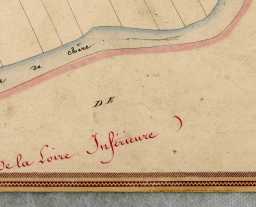 de chère
DE
De la Loire Inférieure )